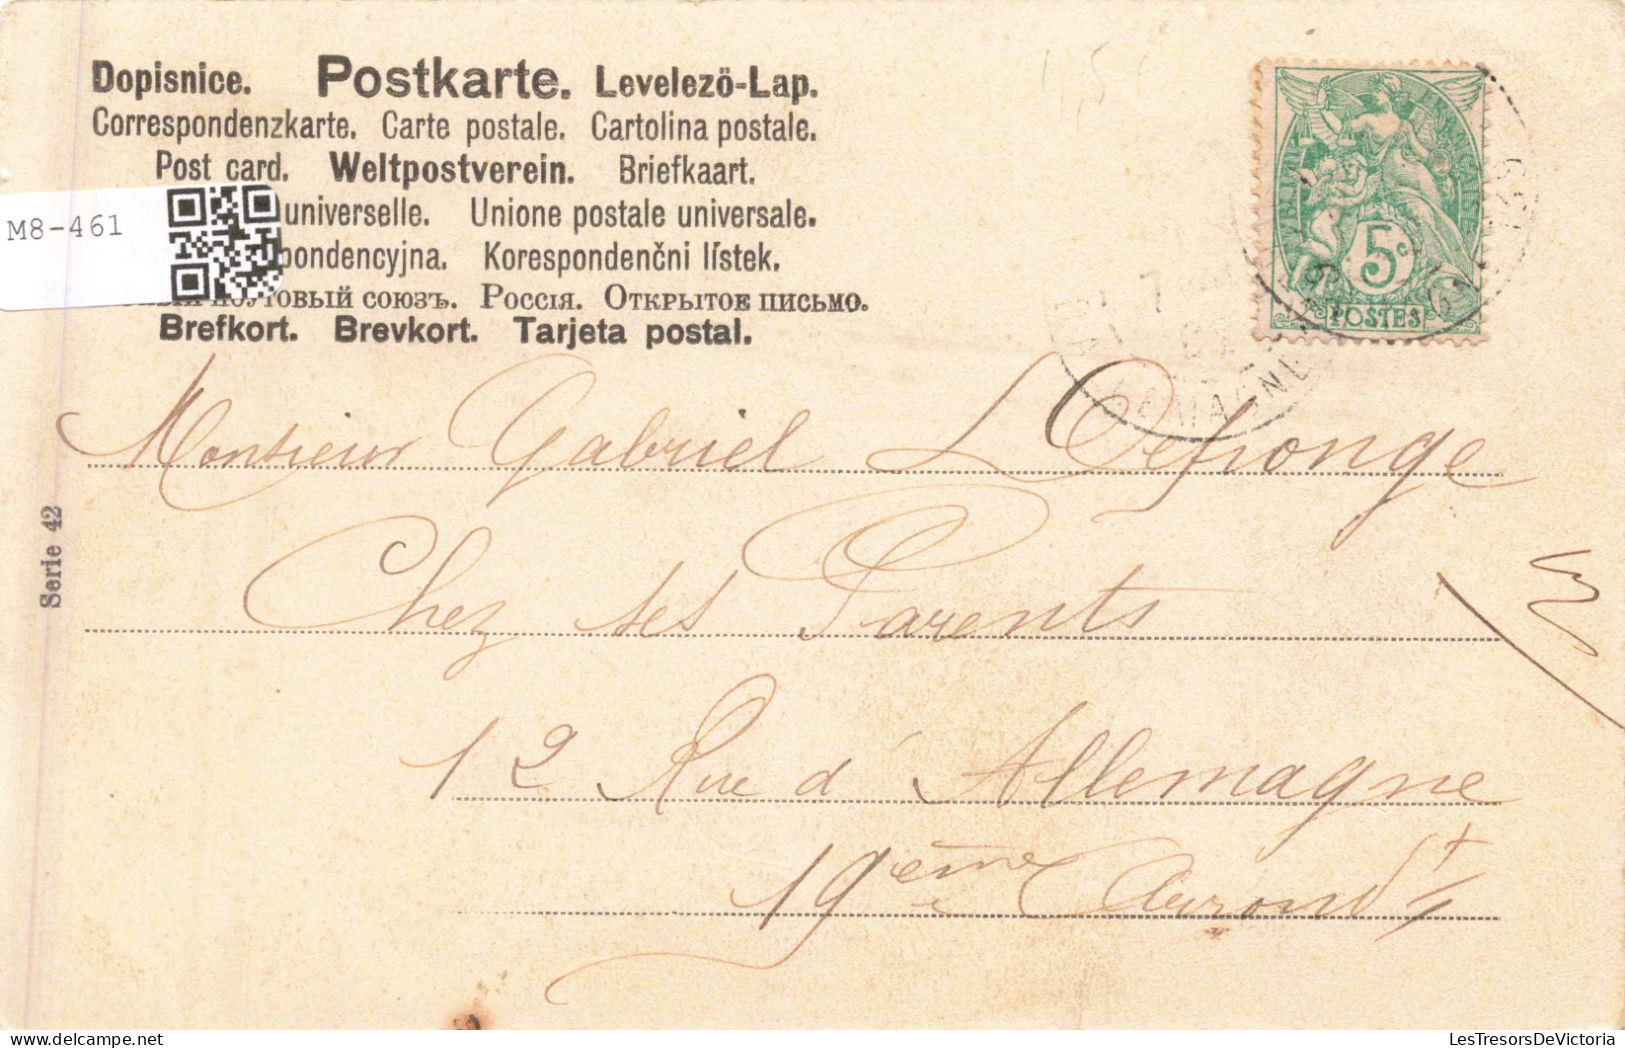 Dopisnice. Postkarte. Levelezö-Lap.
Correspondenzkarte. Carte postale. Cartolina postale.
Post card. Weltpostverein. Briefkaart.
universelle. Unione postale universale.
pondencyjna. Korespondenční lístek.
союзъ. Россія. Открытое письмо.
Brefkort. Brevkort. Tarjeta postal.
M8-461
5c
POSTES
Serie 42
Monsieur Gabriel L Defronge
Chez ses Parents
12 Rue d'Allemagne
19ème Arrondt
LesTresorsDeVictoria.com